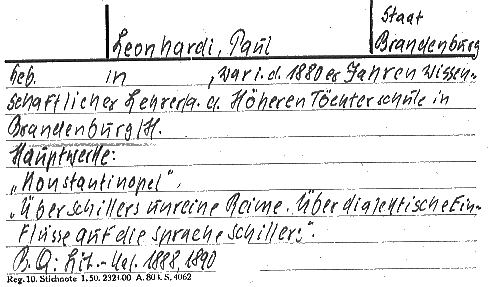 Staat
Leonhardi, Paul Brandenburg
Geb. in , war i. d. 1880er Jahren wissen-
schaftlicher Lehrer a. d. Höheren Töchterschule in
Brandenburg/H.
Hauptwerke:
„Konstantinopel".
„Über Schillers unreine Reime. Über dialektische Ein-
flüsse auf die Sprache Schillers".
B. Q: Lit.-Kal. 1888, 1890
Reg. 10. Stichnote 1. 50. 2321 00 A. 80 k S. 4062